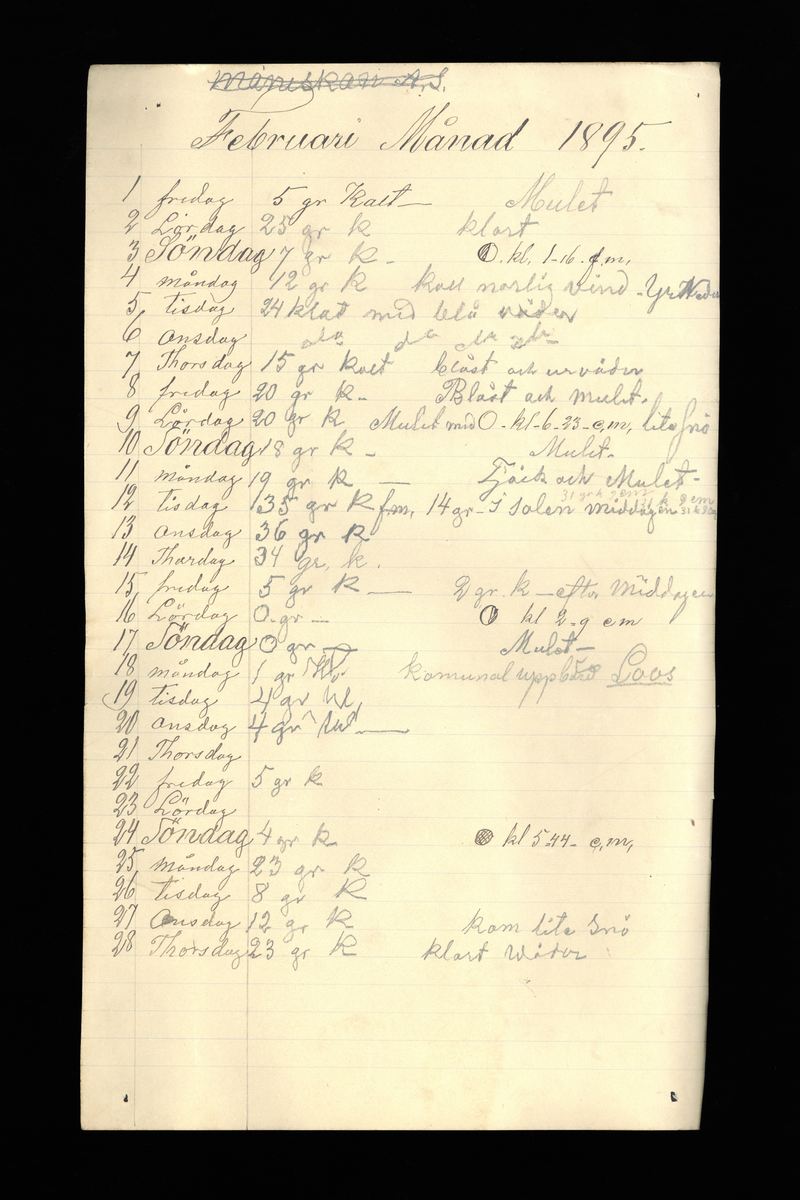 Februari Månad 1895.
1 fredag 5 gr Kalt — Mulet
2 Lördag 23 gr k klart
3 Söndag 7 gr k - kl. 1-16. f.m.
4 måndag 12 gr k kall norlig vind -
5 tisdag 24 klat med blå väder
6 onsdag do do do do
7 Thorsdag 15 gr kalt blåst och urväder
8 fredag 20 gr k- Blåst och mulet.
9 Lördag 20 gr k Mulet med O - kl-6-23- e,m, lite snö
10 Söndag 18 gr k - Mulet-
11 måndag 19 gr k — Tjäck och Mulet-
12 tisdag 35 gr k f.m, 14 gr - i solen middagen
13 onsdag 36 gr k
14 Thordag 34 gr, k.
15, fredag 5 gr k — 2 gr. k — efter Middagen
16 Lördag 0- gr — kl 2-9 em
17 Söndag 0 gr — Mulet-
18 måndag 1 gr komunal uppbörd Loos
19 tisdag 4 gr
20 onsdag 4 gr
21 Thorsdag
22 fredag 5 gr k
23 Lördag
24 Söndag 4 gr k kl 5-44- e,m,
25, måndag 23 gr k
26 tisdag 8 gr k
27 Onsdag 12 gr k kom lite snö
28 Thorsdag 23 gr k klart Wäder